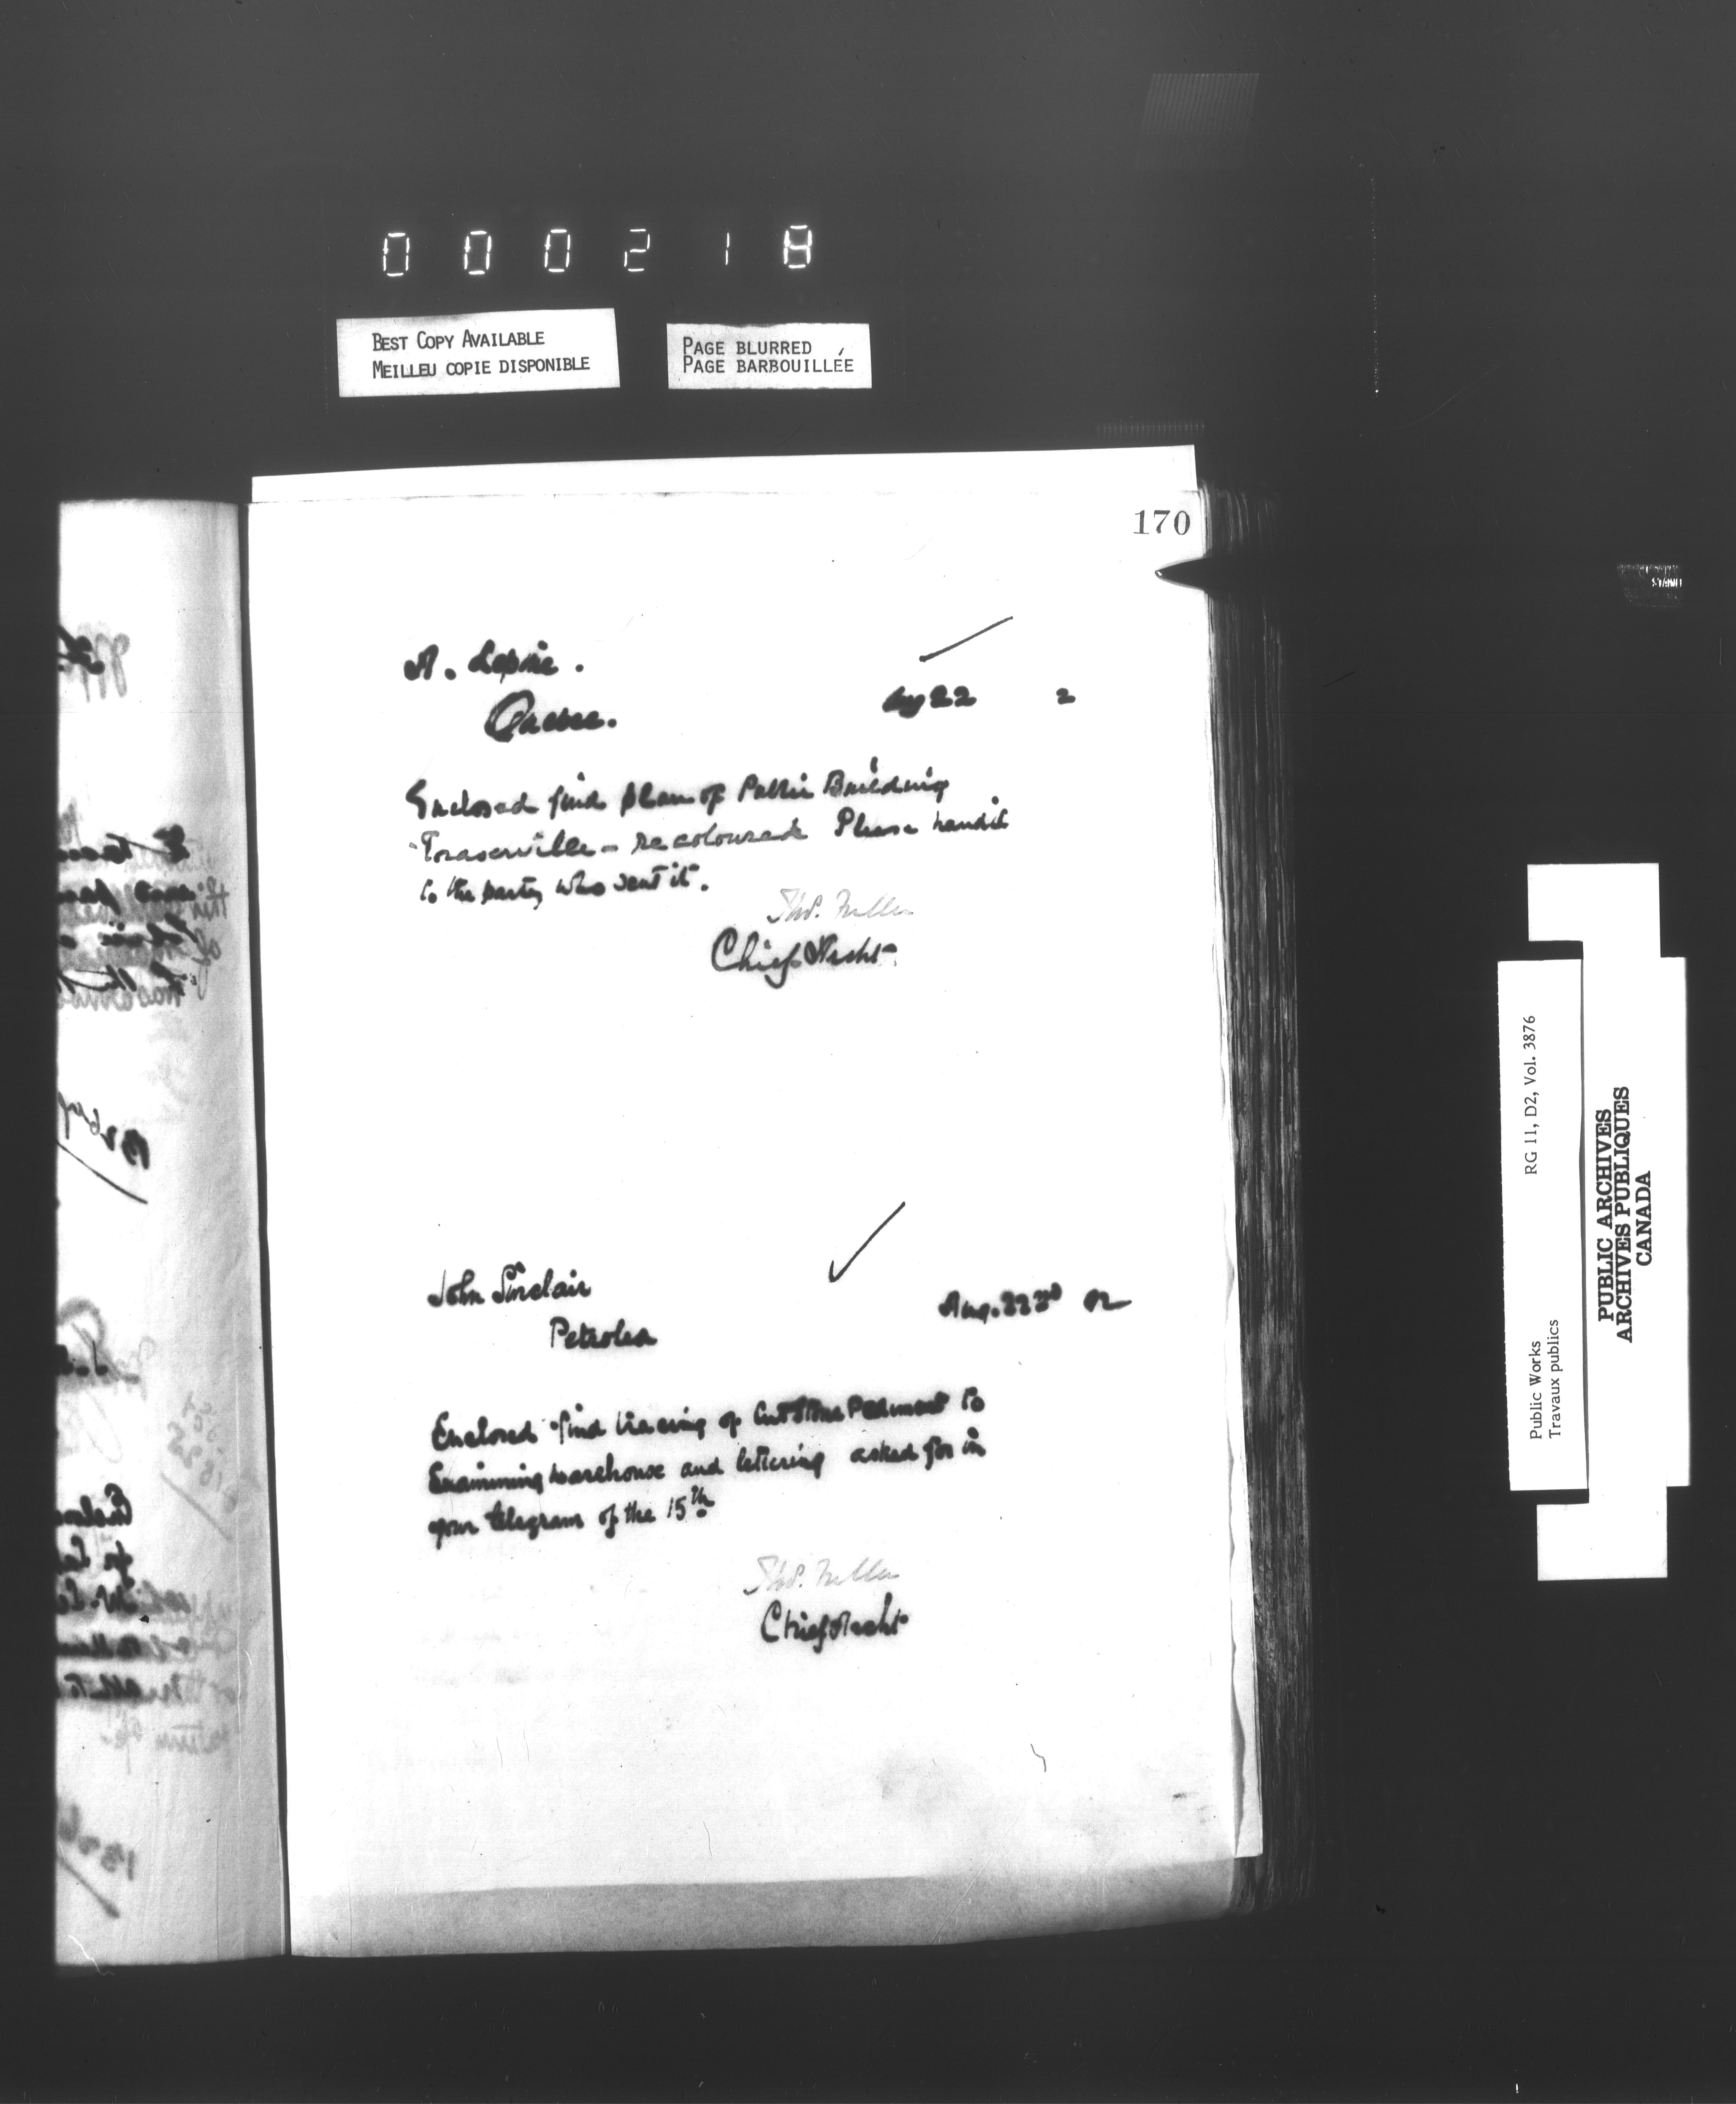 000218
BEST COPY AVAILABLE
MEILLEU COPIE DISPONIBLE
PAGE BLURRED
PAGE BARBOUILLÉE
170
A. Lepine.
Quebec.
Aug 22 2
Enclosed find plan of Public Building
Fraserville - recoloured Please hand it
to the party who sent it.
Thos. Fuller
Chief Archt.
John Sinclair
Petrolea
Aug. 22nd 92
Enclosed find tracing of Cut Stone Pediment to
Examining warehouse and lettering asked for in
your telegram of the 15th
Thos. Fuller
Chief Archt
Public Works RG 11, D2, Vol. 3876
Travaux publics
PUBLIC ARCHIVES
ARCHIVES PUBLIQUES
CANADA